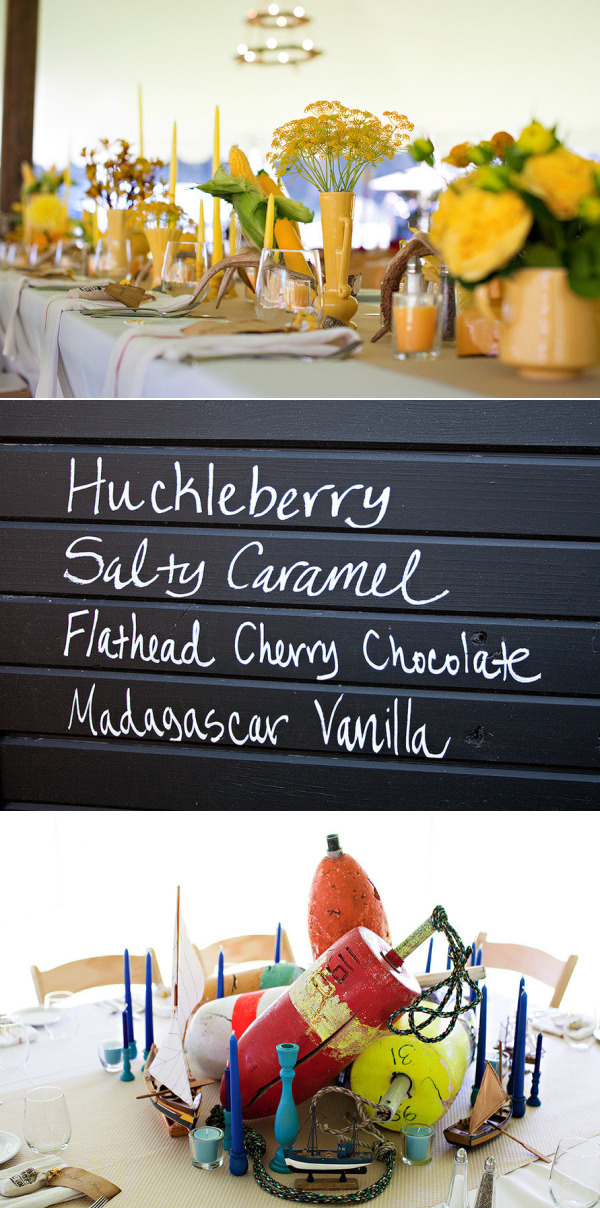 Huckleberry
Salty Caramel
Flathead Cherry Chocolate
Madagascar Vanilla
31